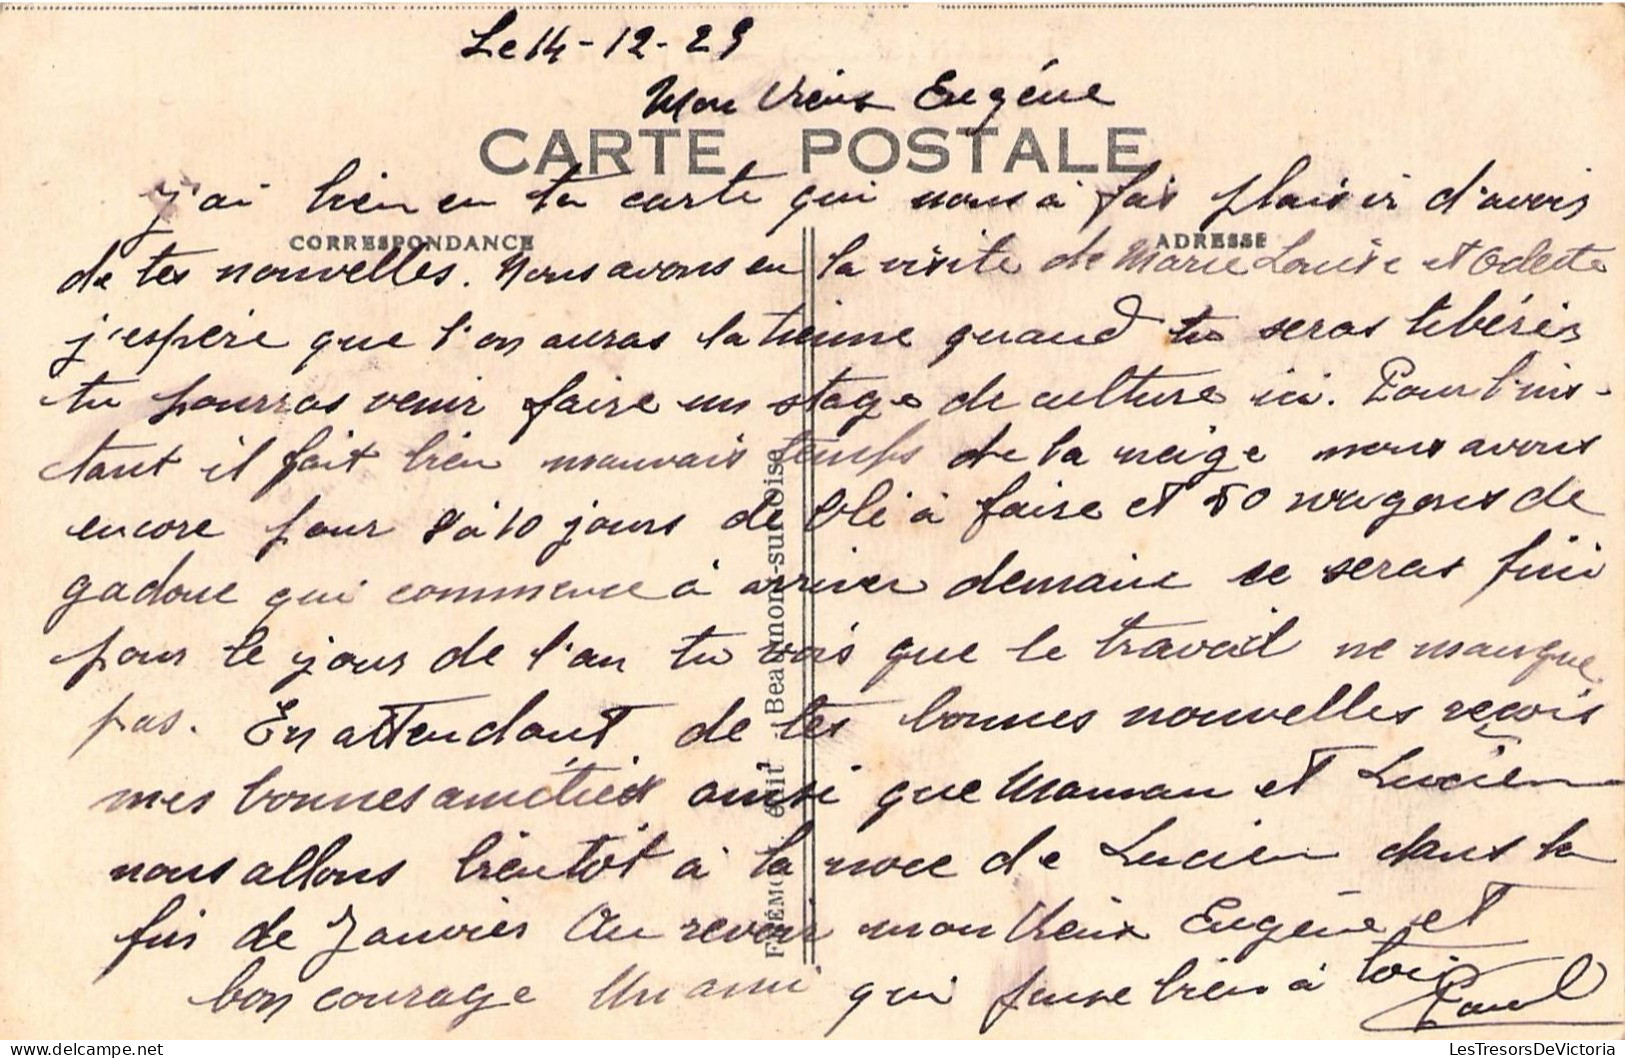 Le 14-12-29
Mon Vieux Eugéne
CARTE POSTALE
j'ai bien eu ta carte qui nous à fais plaisir d'avois
CORRESPONDANCE
ADRESSE
de tes nouvelles. Nous avons eu la visite de Marie Louise et Odette
j'espére que l'on auras la tienne quand tu seras libérés
tu pourras venir faire un stage de culture ici. Pour l'ins-
tant il fait bien mauvais temps de la neige nous avons
encore pour 8 à 10 jours de blé à faire et 50 wagons de
gadoue qui commence à arriver demain se seras fini
pour le jour de l'an tu vois que le travail ne manque
pas. En attendant de tes bonnes nouvelles reçois
mes bonnes amitiés ainsi que Maman et Lucien
nous allons bientôt à la noce de Lucien dans la
fin de Janvier Au revoir mon Vieux Eugéne et
bon courage Un ami qui pense bien à toi
Paul
FRÉMONT édit. Beaumont-sur-Oise
LesTresorsDeVictoria